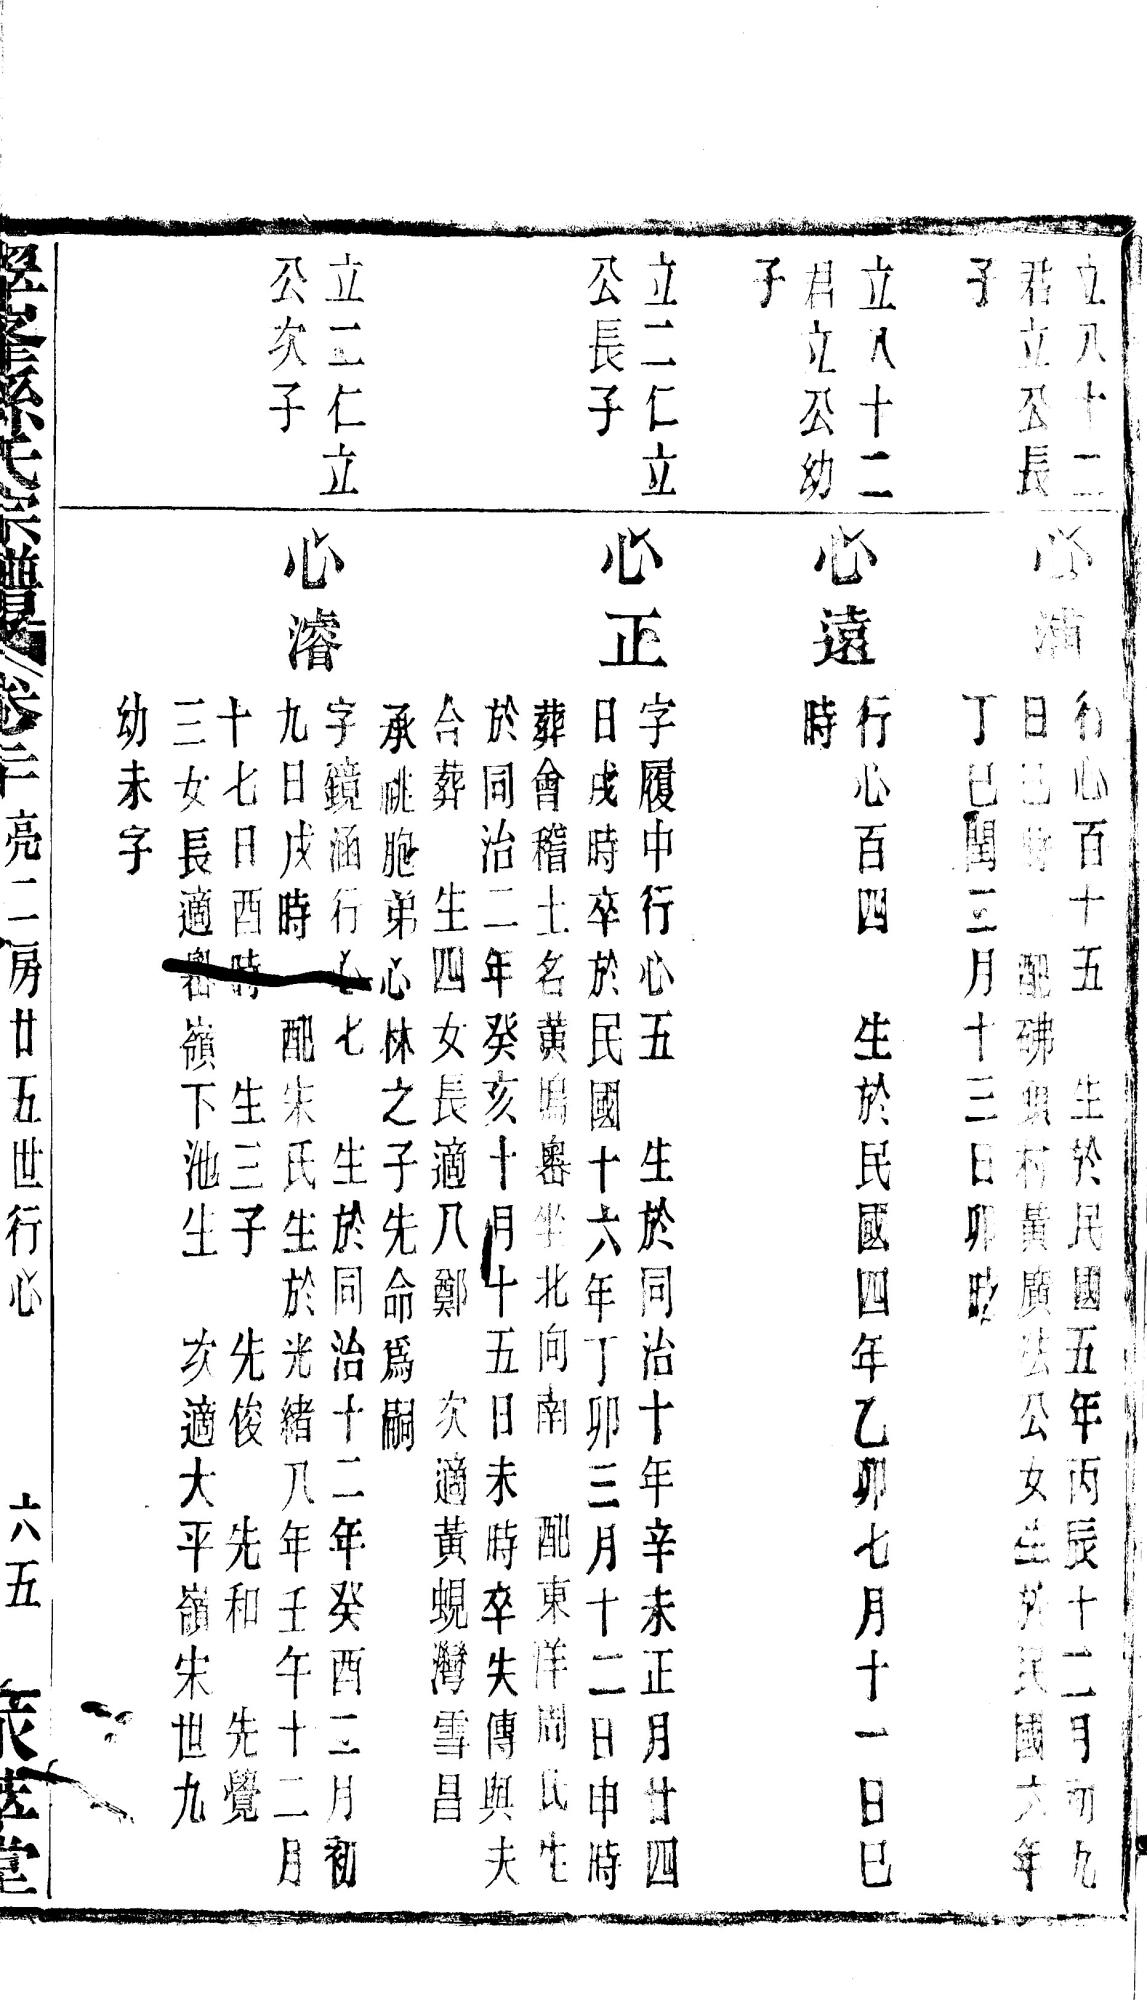 立八十二
君立公長
子
心浦
行心百十五　生於民國五年丙辰十二月初九
日巳時　配砩頭村黃廣法公女生於民國六年
丁巳閏三月十三日卯時
立八十二
君立公幼
子
心遠
行心百四　生於民國四年乙卯七月十一日巳
時
立二仁立
公長子
心正
字履中行心五　生於同治十年辛未正月廿四
日戌時卒於民國十六年丁卯三月十二日申時
葬會稽土名黃鳴墺坐北向南　配東洋周氏生
於同治二年癸亥十月十五日未時卒失傳與夫
合葬　生四女長適八鄭　次適黃蜆灣雪昌
承祧胞弟心林之子先命爲嗣
立二仁立
公次子
心濬
字鏡涵行心七　生於同治十二年癸酉二月初
九日戌時　配宋氏生於光緒八年壬午十二月
十七日酉時　生三子　先俊　先和　先覺
三女長適墺嶺下池生　次適大平嶺宋世九
幼未字
孫氏宗譜　卷二　亮二房廿五世行心　六五　萃堂